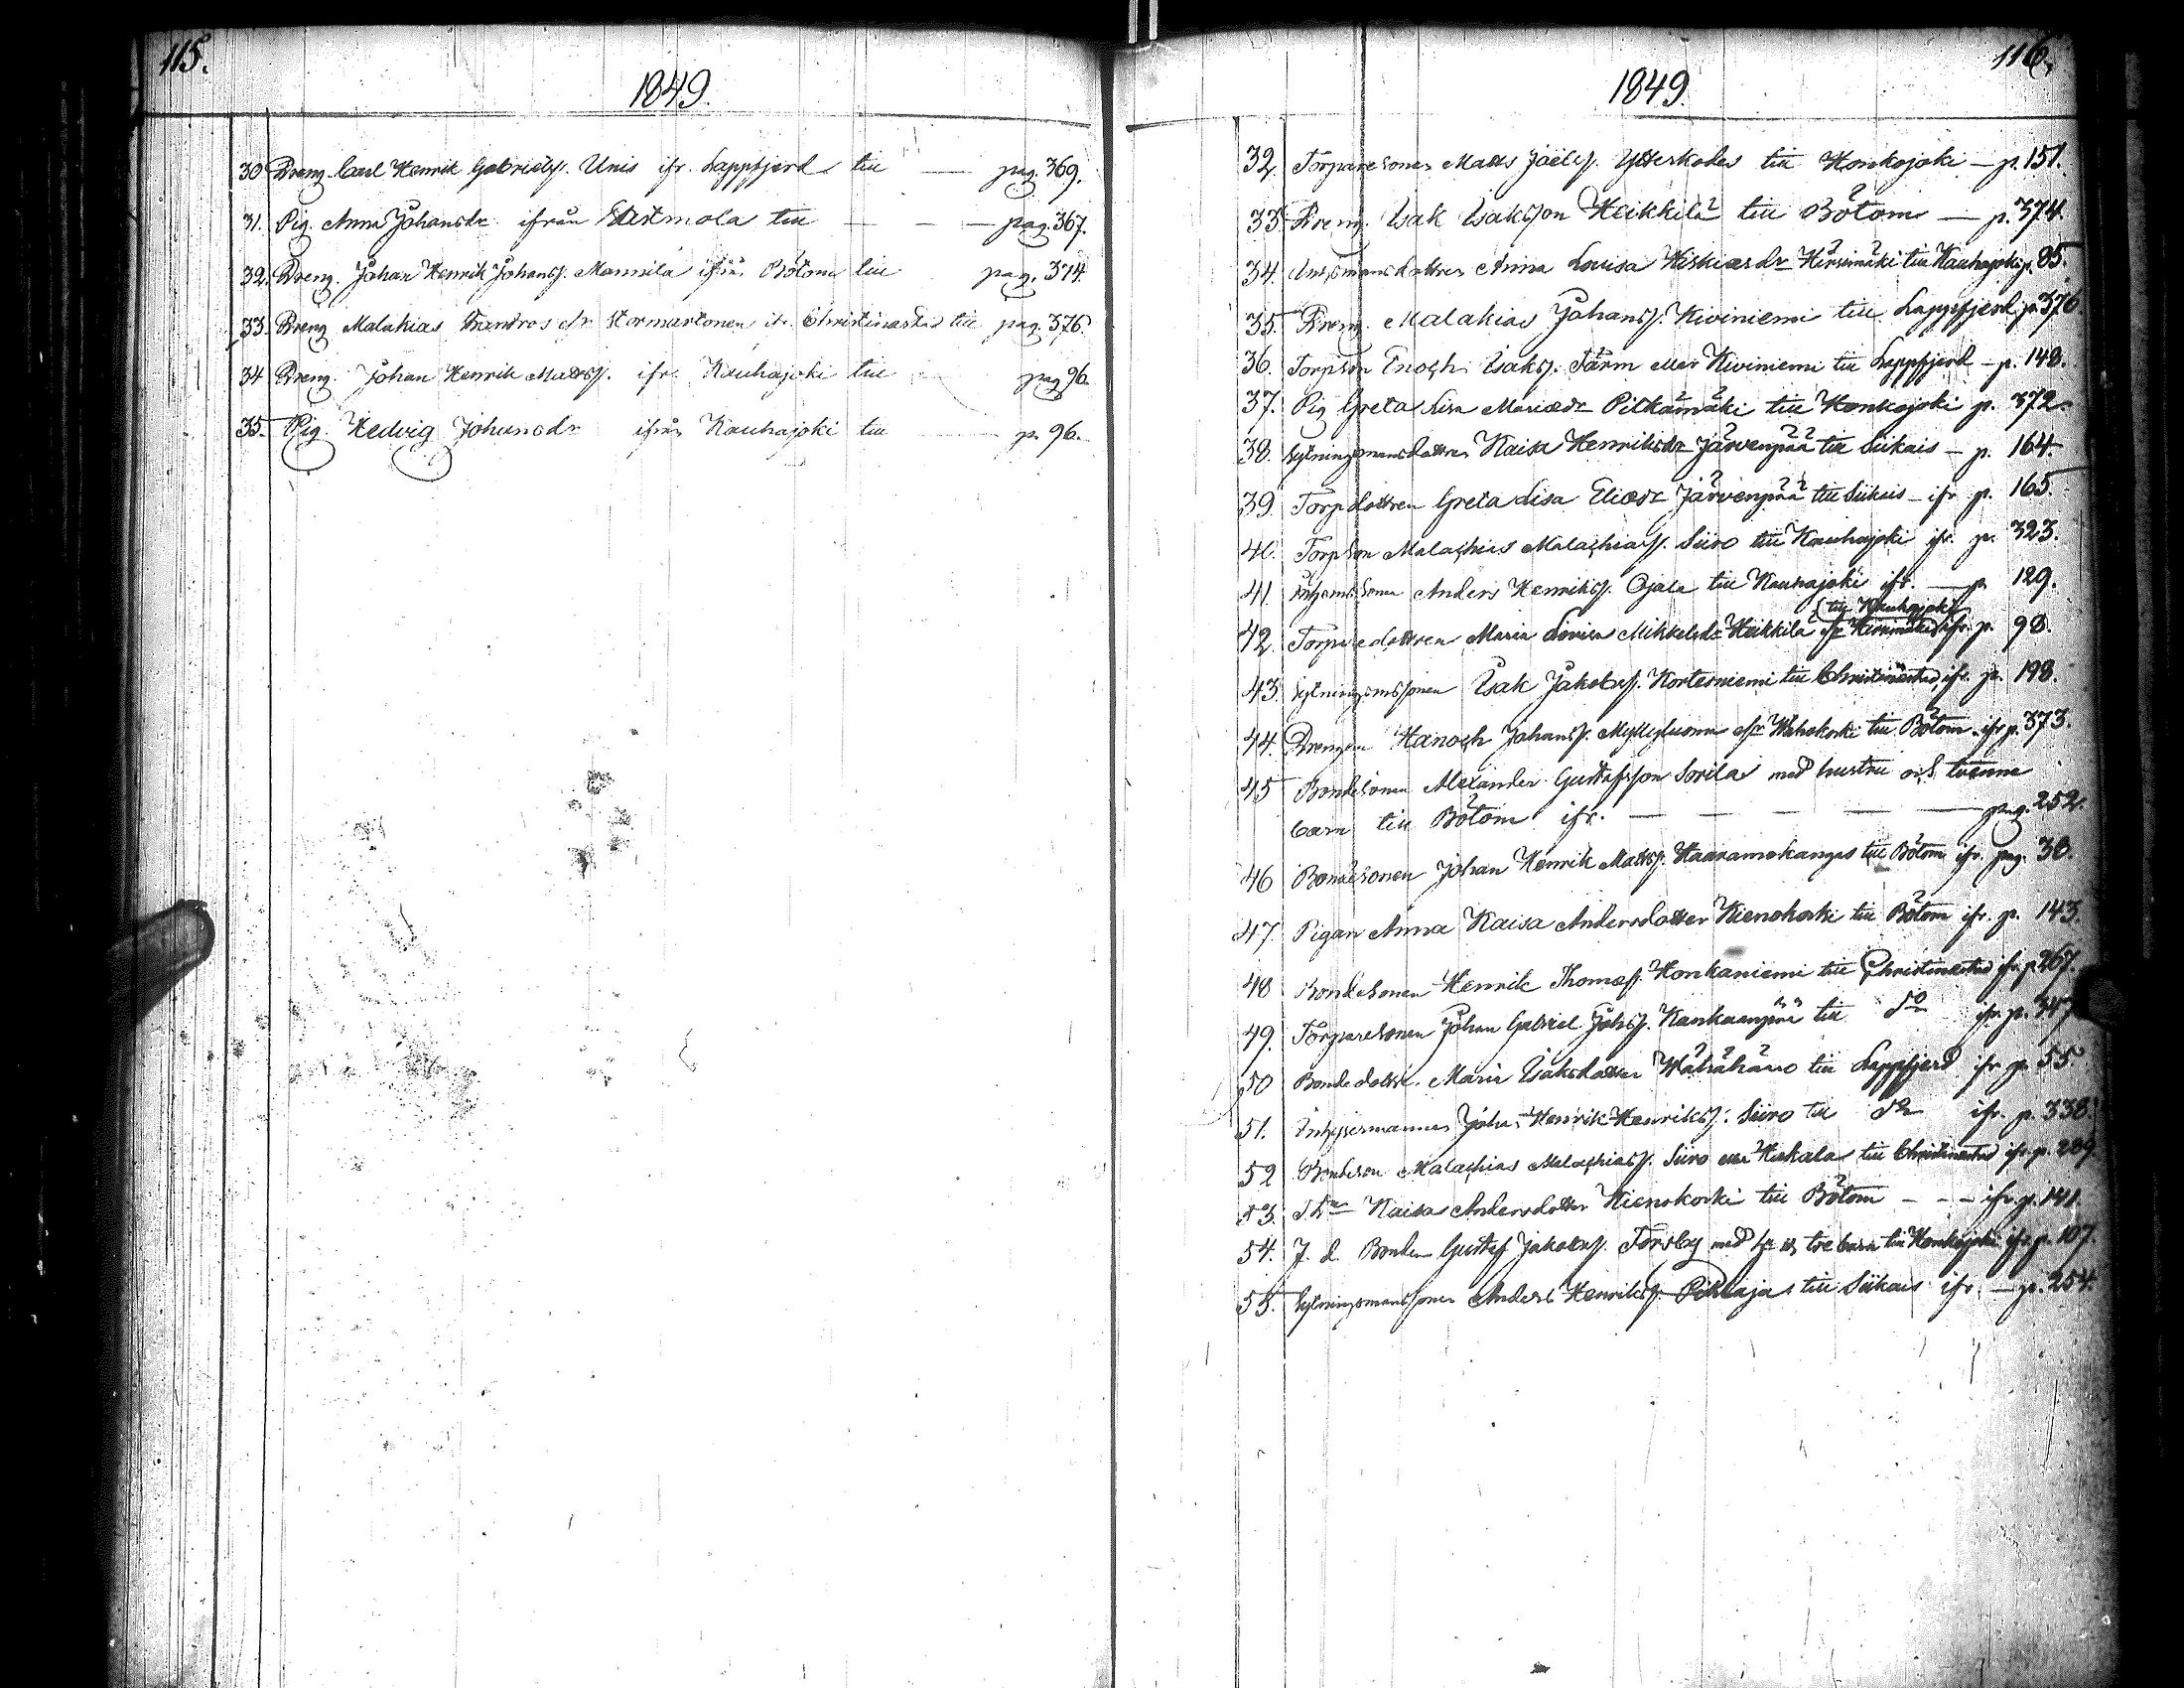 115.
1849.
30 Dreng. Carl Henrik Gabrielss. Unis ifr. Lappfjerd till — pag. 369.
31. Pig. Anna Johansdr ifrån Sastmola till — — — pag. 367.
32. Dreng. Johan Henrik Johanss. Mannila ifrån Bötom till pag. 374.
33. Dreng Malakias Sandros Stormartonen ifr. Christinestad till pag. 376.
34 Dreng. Johan Henrik Matss. ifr. Kauhajoki till pag 96.
35. Pig. Hedvig Johansdr ifrån Kauhajoki till — p. 96.
116.
1849.
32. Torparesonen Matts Joelss. Ytterkoles till Honkajoki — p. 151.
33. Dreng. Isak Isaksson Heikkilä till Bötom — p. 374.
34. Anna Lovisa Hiskiasdr Hirsimäki till Kauhajoki p. 85.
35. Dreng. Malakias Johanss. Kiviniemi till Lappfjerd p. 376
36. Torpson Enoch Isakss. Särm eller Kiviniemi till Lappfjerd — p. 148.
37. Pig Greta Lisa Mariædr Pitkämäki till Honkajoki p. 372.
38. Sytningsmansdottren Kaisa Henriksdr Järvenpää till Siikais — p. 164.
39. Torpdottren Greta Lisa Eliædr Järvenpää till Siikais — ifr p. 165.
40. Torpson Malachias Malachiass. Siiro till Kauhajoki ifr. p. 323.
41. Anders Henrikss. Ojala till Kauhajoki ifr. — p 129.
{till Kauhajoki
42. Torparedottren Maria Lovisa Mikkelsdr Heikkilä Hirsimäki ifr. p. 98.
43. Sytningsmssonen Isak Jakobss. Kortesniemi till Christinestad, ifr. p. 198.
44. Drengen Hanoch Johanss. Myllyluoma Wähäkoski till Bötom. ifr p. 373.
45 Bondesonen Alexander Gustafsson Sorila med hustru och tvenne
barn till Bötom ifr. — — — pag. 252.
46 Bondesonen Johan Henrik Matss. Haaramokangas till Bötom ifr. pag. 38.
47. Pigan Anna Kaisa Andersdotter Kienokoski till Bötom ifr. p. 143.
48 Bondesonen Henrik Thomæss. Honkaniemi till Christinestad ifr. p. 267.
49. Torparesonen Johan Gabriel Johss. Kankaanpää till do ifr. p. 347.
50 Bondedottr. Maria Isaksdotter Wähähäiro till Lappfjerd ifr. p. 55.
51. Inhysesmannen Johan Henrik Henrikss. Siiro till do ifr. p. 338.
52 Bondeson Malachias Malachiass. Siiro eller Hiskala till Christinestad ifr. p. 289
53. Kaisa Andersdotter Kienokoski till Bötom - - - ifr. p. 141.
54. F. d. Bonden Gustaf Jakobss. Forsby med tre barn till Honkajoki ifr. p. 107.
55. Sytningsmanssonen Anders Henrikss. Pihlaja till Siikais ifr. — p. 254.